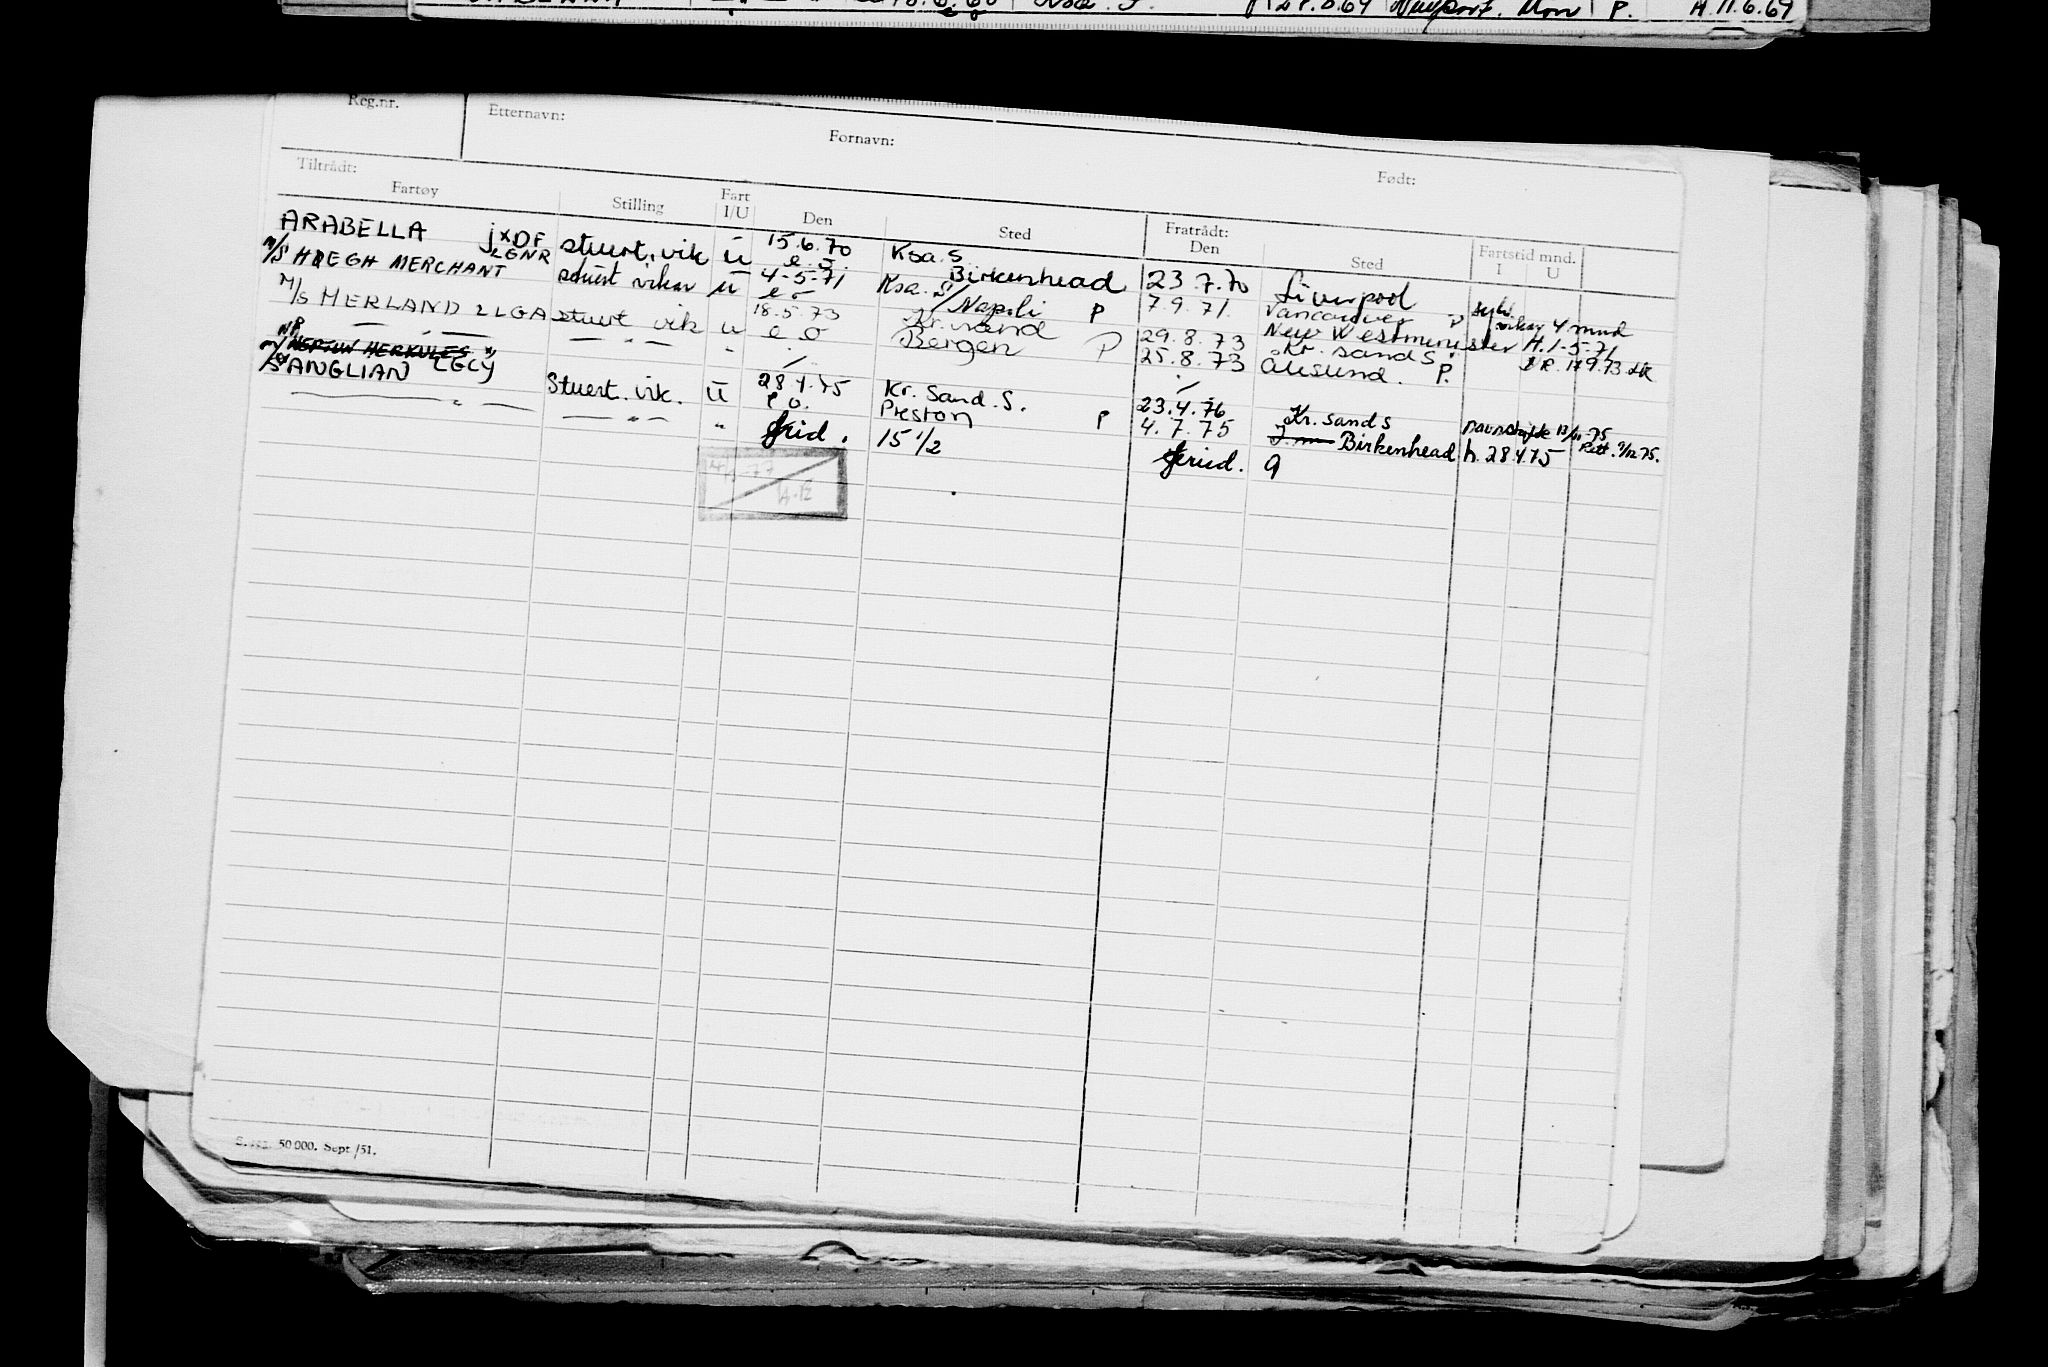 28.8.69 Newport. Mon P. H. 11.6.69
Reg.nr. Etternavn: Fornavn: Født:
Tiltrådt: Fratrådt:
Fartøy Stilling Fart I/U Den Sted Den Sted Fartstid mnd. I U
ARABELLA JXDF stuert. vik u 15.6.70 Ksa. S Birkenhead 23.7.70 Liverpool
M/S HØEGH MERCHANT LGNR stuert vikar u 4-5-71 Ksa. S/Napoli P 7.9.71 Vancouver vikar 4 mnd
M/S HERLAND LLGA stuert vik u 18.5.73 Kr.sand 29.8.73 New Westminister H. 1-5-71
— " — — " — " e o Bergen P 25.8.73 Kr. sand S
Ålesund. P. 17.9.73
NEPTUN HERKULES
M/S ANGLIAN LGCY Stuert. vik. u 28.4.75 Kr. Sand. S. 23.4.76 Kr. sand S navneskifte 13/11-75
— " — — " — " e o. Preston P 4.7.75 Birkenhead h. 28.4.75 Rett. 9/12 75.
fried. 15 1/2 fried. 9
50 000. Sept /51.